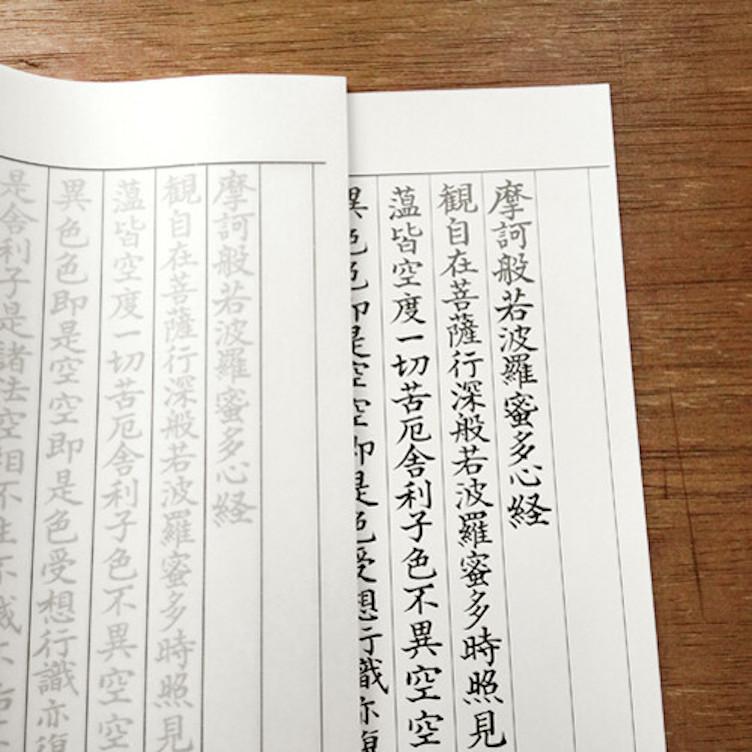 摩訶般若波羅蜜多心経
観自在菩薩行深般若波羅蜜多時照見
薀皆空度一切苦厄舎利子色不異空空
異色色即是空空即是色受想行識亦
摩訶般若波羅蜜多心経
観自在菩薩行深般若波羅蜜多時照見
薀皆空度一切苦厄舎利子色不異空空
異色色即是空空即是色受想行識亦復
是舎利子是諸法空相不生不滅不垢